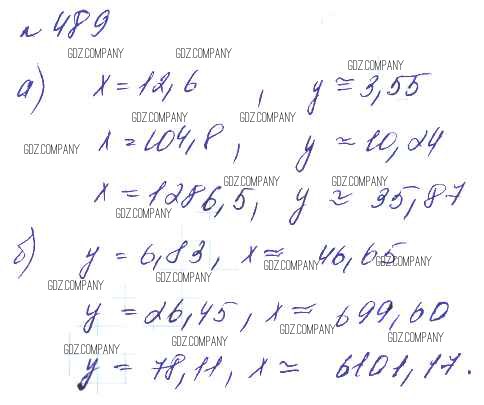 №489
GDZ.COMPANY GDZ.COMPANY
GDZ.COMPANY
а) x = 12,6 , y ≅ 3,55
GDZ.COMPANY GDZ.COMPANY
GDZ.COMPANY x ≈ 104,8 , y ≈ 10,24
GDZ.COMPANY GDZ.COMPANY
x = 1286,5, y ≈ 35,87
GDZ.COMPANY
б) y = 6,83, x ≈ 46,65
GDZ.COMPANY
GDZ.COMPANY
GDZ.COMPANY
y = 26,45, x ≈ 699,60
GDZ.COMPANY
GDZ.COMPANY GDZ.COMPANY
GDZ.COMPANY
y = 78,11, x ≈ 6101,17.